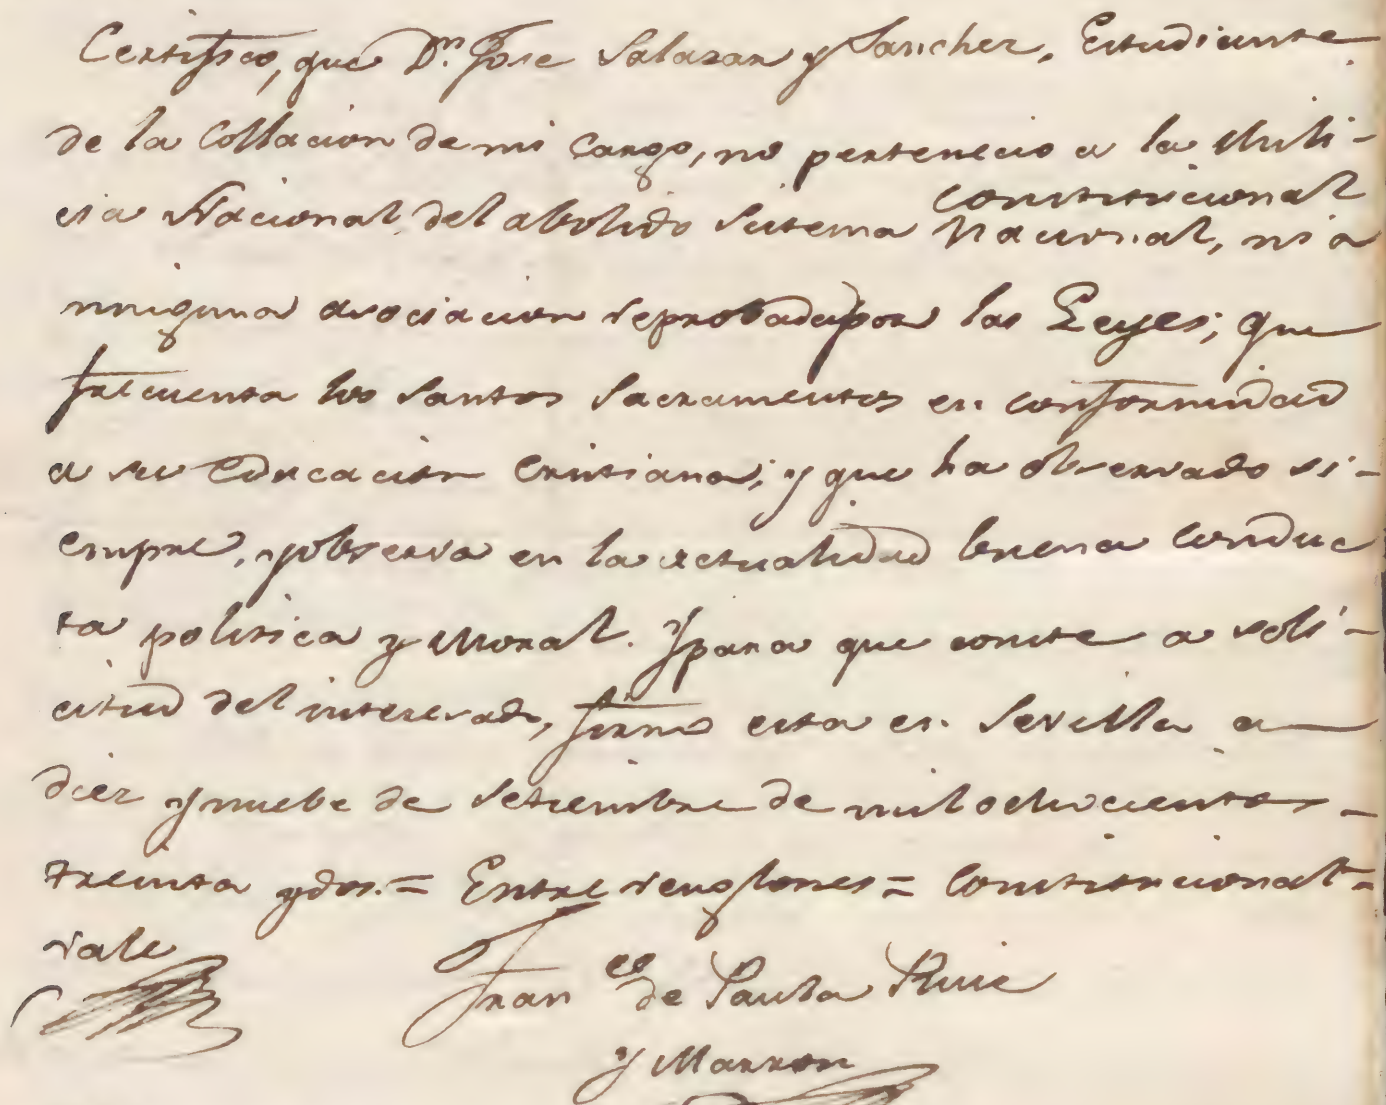 Certifico, que D.n Jose Salazar y Sanchez, Estudiante
de la Collacion de mi cargo, no pertenecio a la Mili-
cia Nacional del abolido Sistema constitucional
Nacional, ni a
ninguna asociacion reprobada por las Leyes; que
frecuenta los Santos Sacramentos en conformidad
a su educacion cristiana; y que ha observado si-
empre, y observa en la actualidad buena conduc
ta politica y Moral. Y para que conste a soli-
citud del interesado, firmo esta en Sevilla a
diez y nuebe de Setiembre de mil ochocientos-
treinta y dos.= Entre renglones = Constitucional =
vale
Fran.co de Paula Ruiz
y Marron